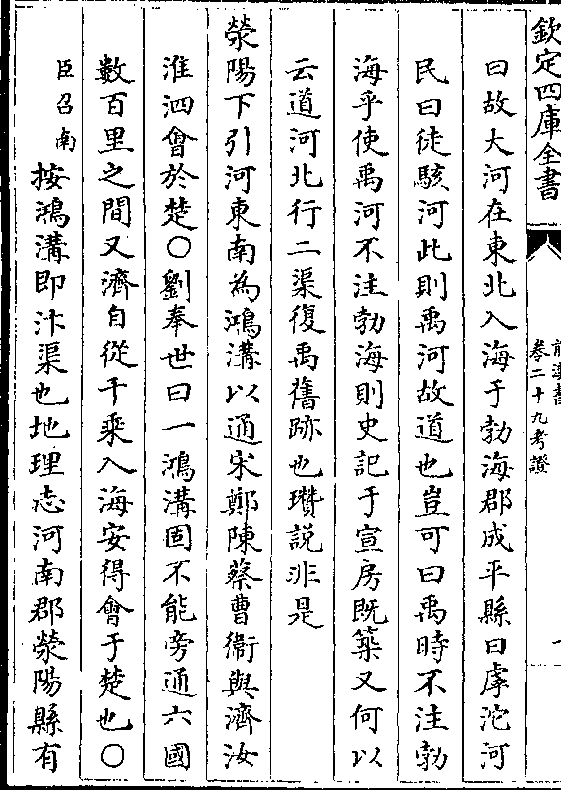 欽定四庫全書
前漢書
卷二十九考證
曰故大河在東北入海于勃海郡成平縣曰虖沱河
民曰徒駭河此則禹河故道也豈可曰禹時不注勃
海乎使禹河不注勃海則史記于宣房既築又何以
云道河北行二渠復禹舊跡也瓚説非是
滎陽下引河東南為鴻溝以通宋鄭陳蔡曹衞與濟汝
淮泗會於楚〇劉奉世曰一鴻溝固不能旁通六國
數百里之間又濟自從千乘入海安得會于楚也〇
臣召南按鴻溝即汴渠也地理志河南郡滎陽縣有